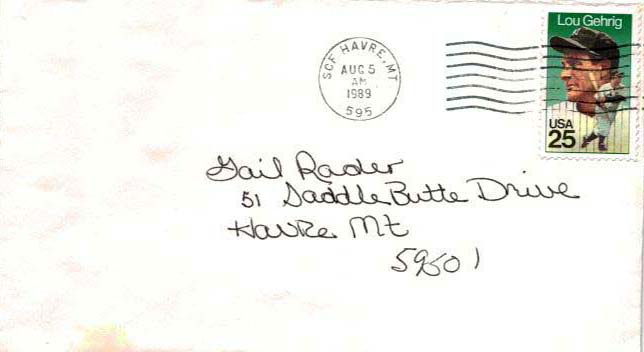 Lou Gehrig
SCF HAVRE, MT
AUG 5
AM
1989
595
USA
25
Gail Rader
51 Saddle Butte Drive
Havre Mt
59501